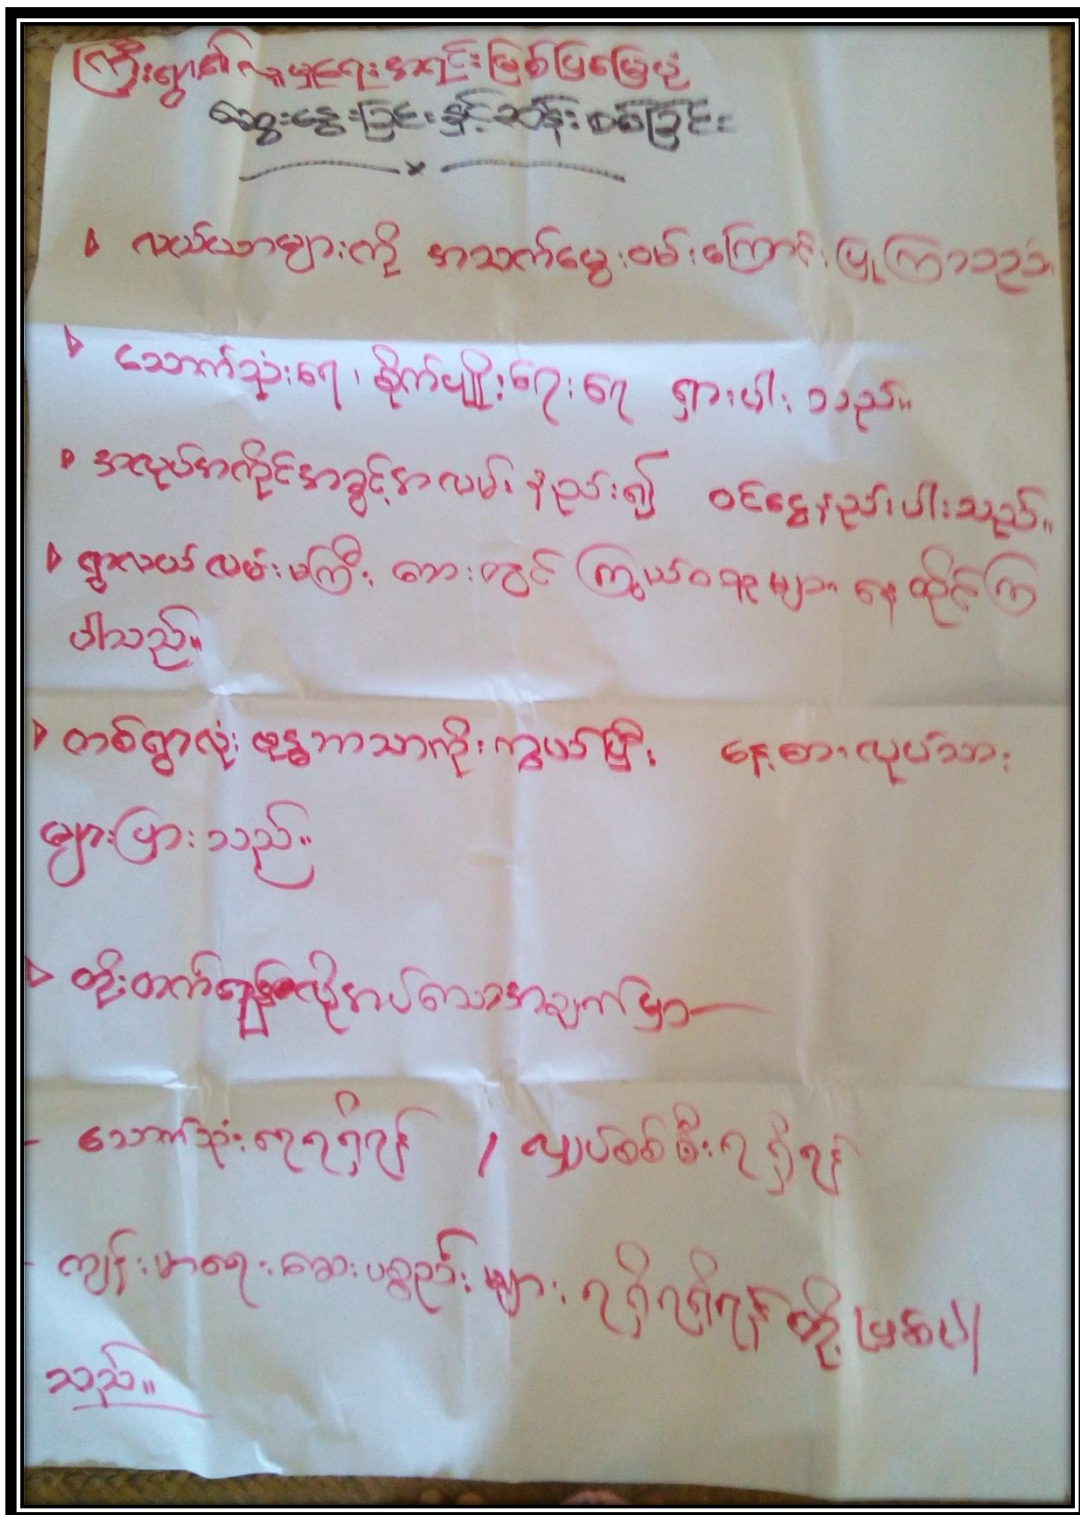 ကြီးရွာ၏လူမှုရေးအရင်းမြစ်ပြမြေပုံ
ဆွေးနွေးခြင်းနှင့်ဆန်းစစ်ခြင်း
လယ်ယာများကို အသက်မွေးဝမ်းကြောင်းပြုကြသည်။
သောက်သုံးရေ၊ စိုက်ပျိုးရေးရေ ရှားပါးသည်။
အလုပ်အကိုင်အခွင့်အလမ်းနည်း၍ ဝင်ငွေနည်းပါးသည်။
ရွာလယ်လမ်းမကြီးဘေးတွင် ကြွယ်ဝသူများနေထိုင်ကြ
ပါသည်။
တစ်ရွာလုံး ဗုဒ္ဓဘာသာကိုးကွယ်ပြီး နေ့စားလုပ်သား
များပြားသည်။
တိုးတက်ရန်လိုအပ်သောအချက်မှာ—
- သောက်သုံးရေရရှိရန် / လျှပ်စစ်မီးရရှိရန်
- ကျန်းမာရေးဆေးပစ္စည်းများ ရရှိရန်တို့ဖြစ်ပါ
သည်။